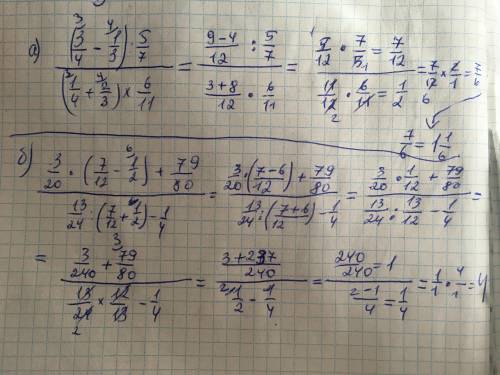 а) ((3/4 - 1/3) : 5/7) / ((1/4 + 2/3) × 6/11) = ((9-4)/12 : 5/7) / ((3+8)/12 · 6/11) = (5/12 · 7/5 = 7/12) / (11/12 · 6/11 = 1/2) = 7/12 × 2/1 = 7/6
7/6 = 1 1/6
б) (3/20 · (7/12 - 1/2) + 79/80) / (13/24 : (7/12 + 1/2) - 1/4) = (3/20 · (7-6)/12 + 79/80) / (13/24 : (7+6)/12 - 1/4) = (3/20 · 1/12 + 79/80) / (13/24 : 13/12 - 1/4) =
= (3/240 + 79/80) / (13/24 × 12/13 - 1/4) = ((3+237)/240) / (1/2 - 1/4) = (240/240 = 1) / ((2-1)/4 = 1/4) = 1/1 · 4/1 = 4